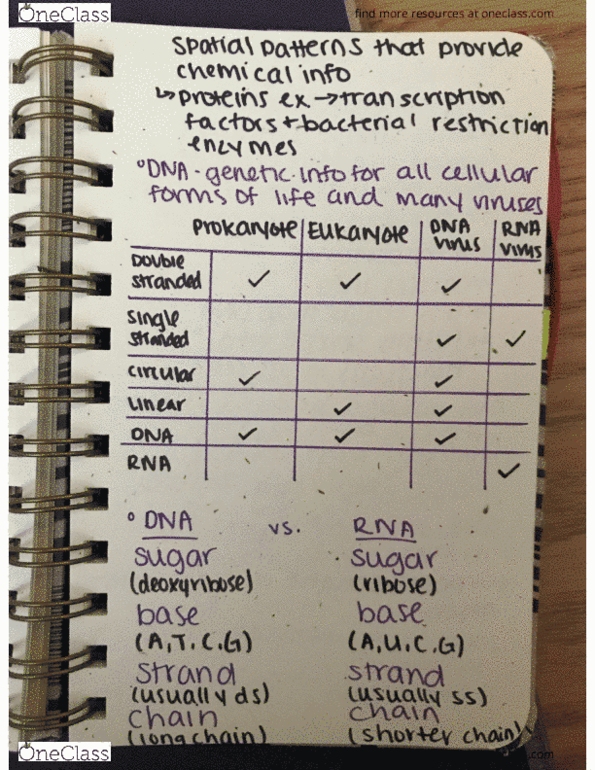 OneClass
find more resources at oneclass.com
spatial patterns that provide
chemical info
↳ proteins ex → transcription
factors + bacterial restriction
enzymes
°DNA - genetic info for all cellular
forms of life and many viruses
Prokaryote | Eukaryote | DNA virus | RNA virus
Double stranded ✓ ✓ ✓
Single stranded ✓ ✓
circular ✓ ✓
linear ✓ ✓
DNA ✓ ✓ ✓
RNA ✓
° DNA vs. RNA
sugar sugar
(deoxyribose) (ribose)
base base
(A,T,C,G) (A,U,C,G)
strand strand
(usually ds) (usually ss)
chain chain
(long chain) (shorter chain)
OneClass